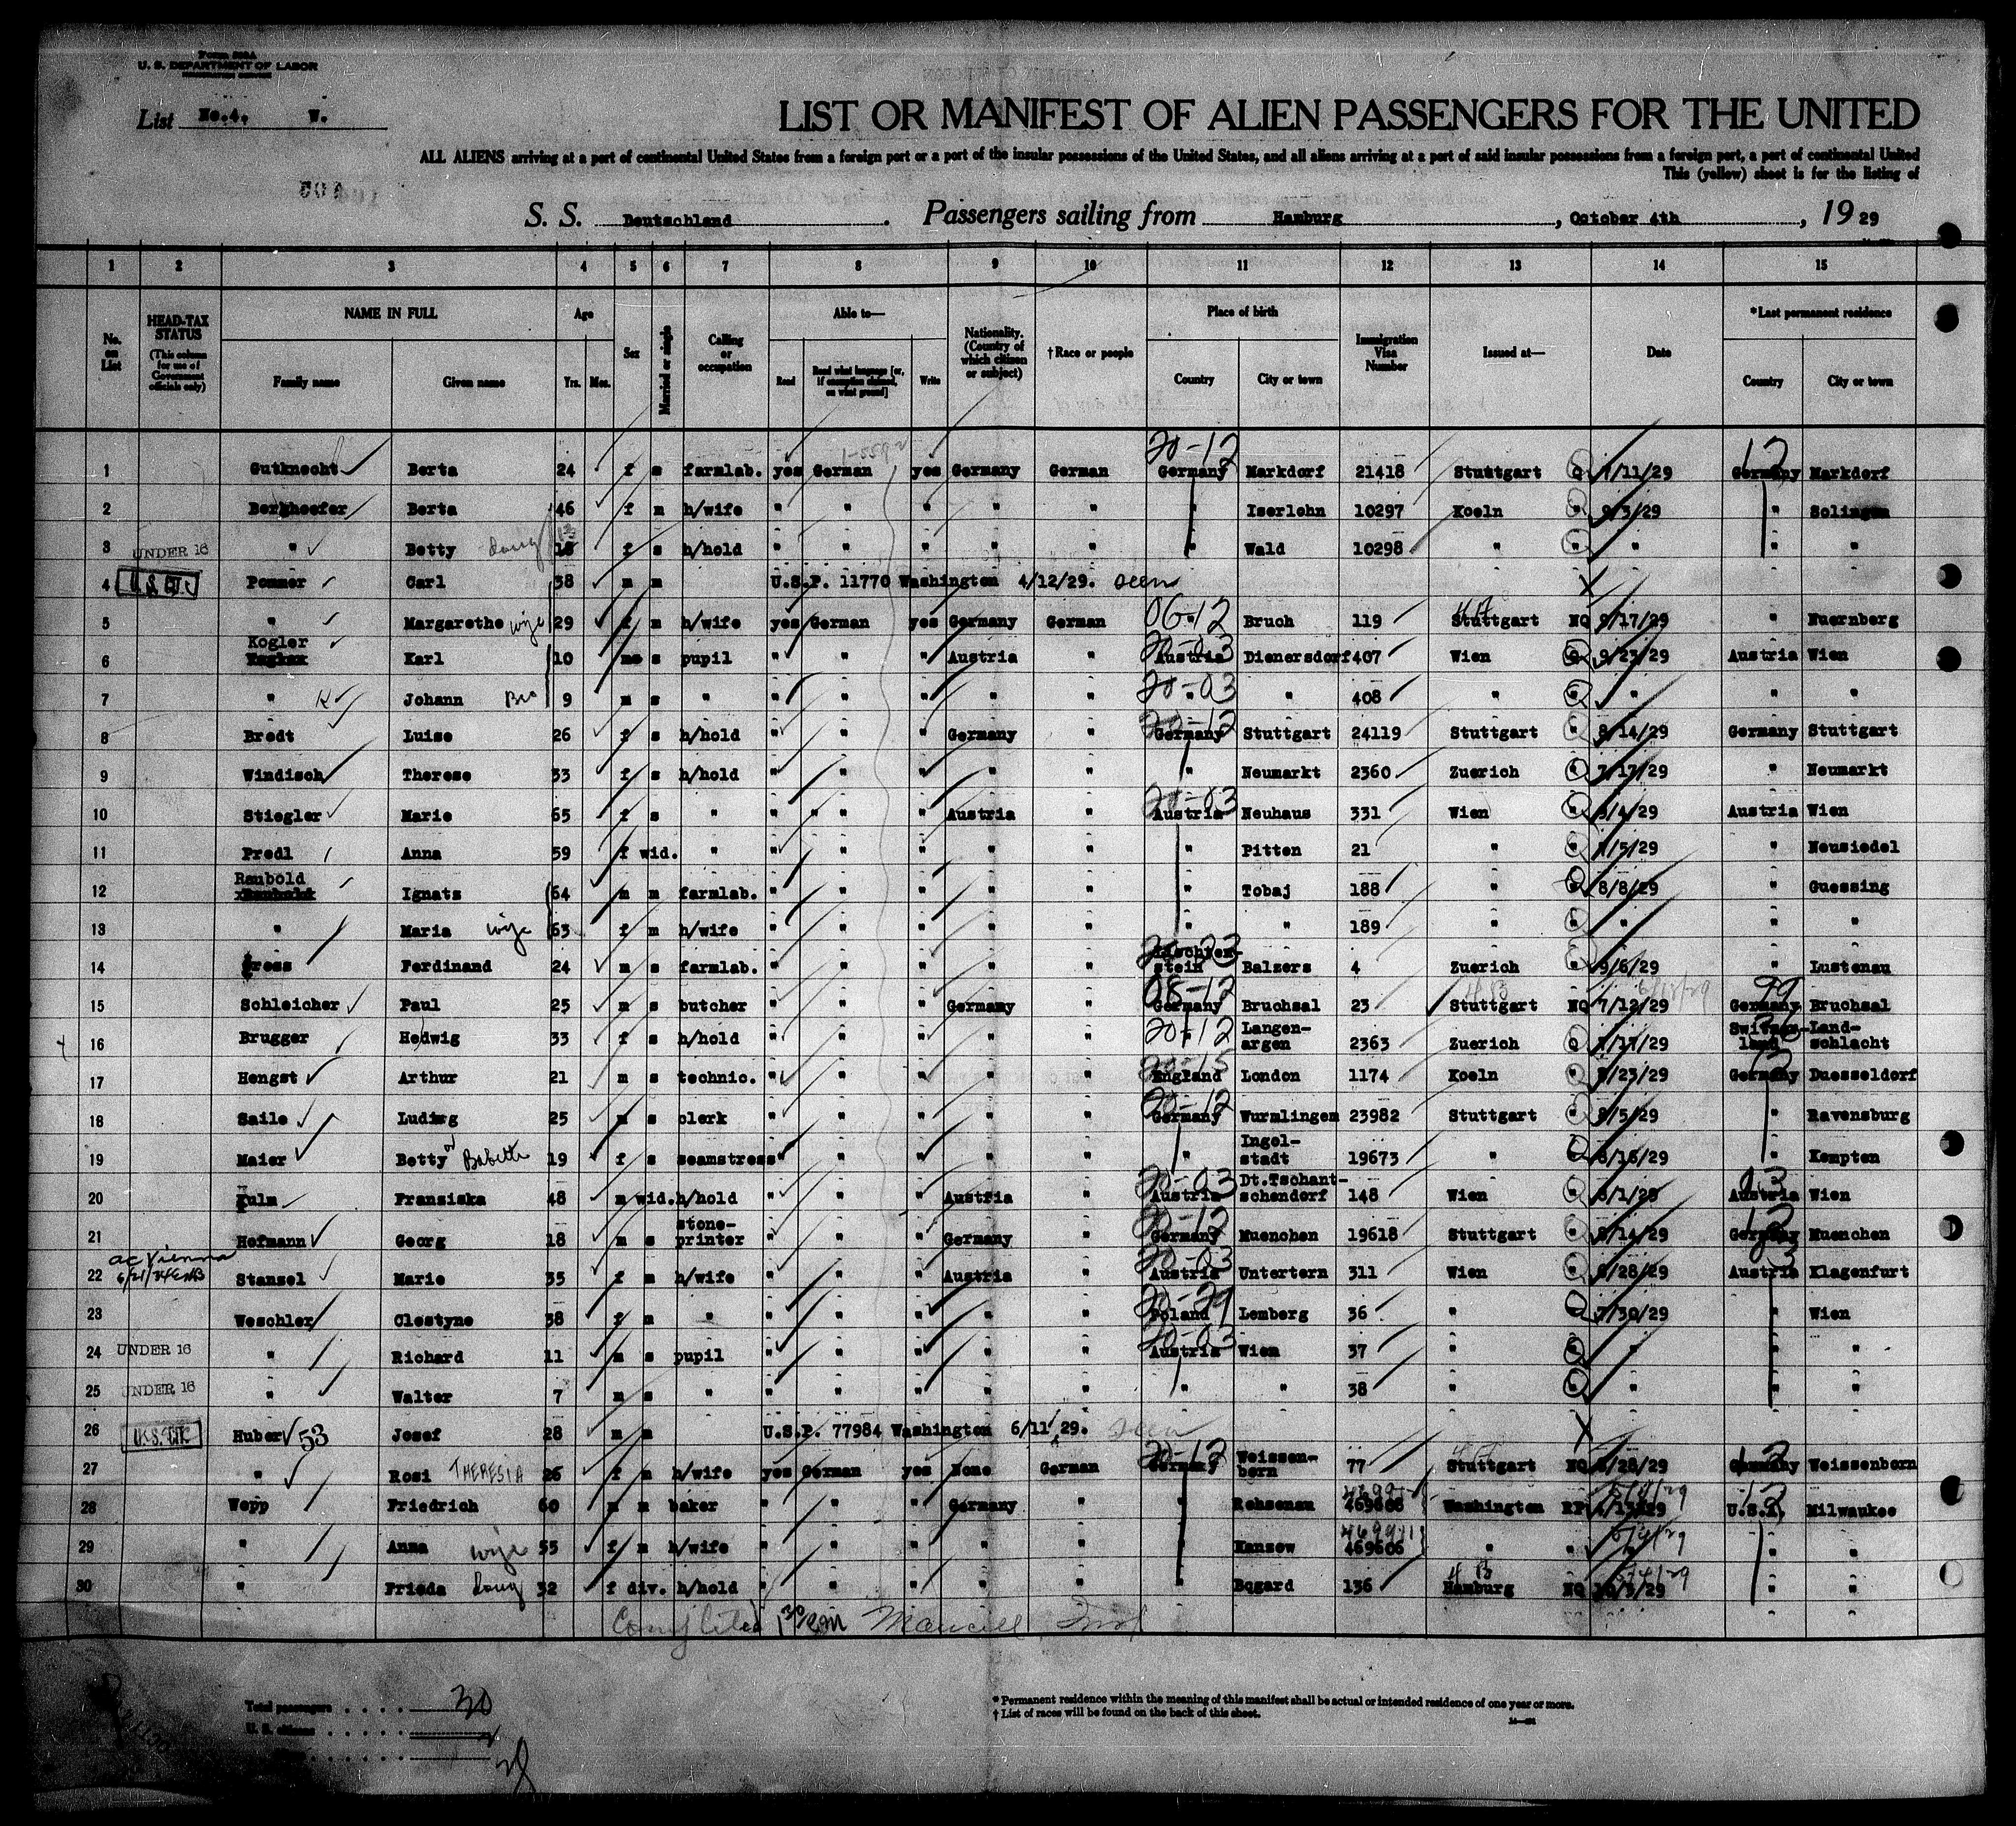 Form 500A
U. S. DEPARTMENT OF LABOR
List No.4. W.
LIST OR MANIFEST OF ALIEN PASSENGERS FOR THE UNITED
ALL ALIENS arriving at a port of continental United States from a foreign port or a port of the insular possessions of the United States, and all aliens arriving at a port of said insular possessions from a foreign port, a port of continental United
This (yellow) sheet is for the listing of
S. S. Deutschland. Passengers sailing from Hamburg, October 4th, 19 29
1 2 3 4 5 6 7 8 9 10 11 12 13 14 15
No. on List HEAD-TAX STATUS (This column for use of Government officials only) NAME IN FULL Family name Given name Age Yrs. Mos. Sex Married or single Calling or occupation Able to— Read Read what language [or, if exemption claimed, on what ground] Write Nationality. (Country of which citizen or subject) †Race or people Place of birth Country City or town Immigration Visa Number Issued at— Date *Last permanent residence Country City or town
1 Gutknecht Berta 24 f s farmlab. yes German yes Germany German Germany 20-12 Markdorf 21418 Stuttgart Q 7/11/29 Germany 12 Markdorf
2 Berghoefer Berta 46 f m h/wife " " " " " " Iserlohn 10297 Koeln " 9/3/29 " Solingen
3 UNDER 16 " Betty daug f s h/hold " " " " " " Wald 10298 " " " " "
4 U.S. CIT. Pommer Carl 38 m m U.S.P. 11770 Washington 4/12/29. seen
5 " Margarethe wife 29 f m h/wife yes German yes Germany German 06-12 " Bruch 119 Stuttgart NQ 9/17/29 " Nuernberg
6 Kogler Karl 10 m s pupil " " " Austria " Austria 20-03 Dienersdorf 407 Wien Q 9/23/29 Austria Wien
7 " Johann Bro 9 m s " " " " " " 20-03 " " 408 " " " " "
8 Bredt Luise 26 f s h/hold " " " Germany " Germany 20-12 Stuttgart 24119 Stuttgart " 8/14/29 Germany Stuttgart
9 Windisch Therese 33 f s h/hold " " " " " " Neumarkt 2360 Zuerich " 7/17/29 " Neumarkt
10 Stiegler Marie 65 f s " " " " " Austria " Austria 20-03 Neuhaus 331 Wien " /4/29 Austria Wien
11 Predl Anna 59 f wid. " " " " " " " Pitten 21 " " /5/29 " Neusiedel
12 Raubold Ignatz 64 m m farmlab. " " " " " " Tobaj 188 " " 8/8/29 " Guessing
13 " Maria wife 63 f m h/wife " " " " " " " 189 " " " " "
14 Ferdinand 24 m s farmlab. " " " " " Liechtenstein Balzers 4 Zuerich " 9/6/29 " Lustenau
15 Schleicher Paul 25 m s butcher " " " Germany " Germany 08-12 Bruchsal 23 Stuttgart NQ 7/12/29 Germany 99 Bruchsal
16 Brugger Hedwig 33 f s h/hold " " " " " 20-12 " Langenargen 2363 Zuerich Q 7/17/29 Switzerland Landschlacht
17 Hengst Arthur 21 m s technic. " " " " " England 20-15 London 1174 Koeln " /23/29 Germany Duesseldorf
18 Saile Ludwig 25 m s clerk " " " " " Germany 20-12 Wurmlingen 23982 Stuttgart " /5/29 " Ravensburg
19 Maier Betty or Babette 19 f s seamstress " " " " " " Ingolstadt 19673 " " 8/16/29 " Kempten
20 Kulm Fransiska 48 m wid. h/hold " " " Austria " Austria 20-03 Dt.Tschantschendorf 148 Wien " Austria 03 Wien
21 Hofmann Georg 18 m s stone-printer " " " Germany " Germany 20-12 Muenchen 19618 Stuttgart " 8/14/29 Germany 12 Muenchen
ac Vienna
22 Stanzel Marie 35 f m h/wife " " " Austria " Austria 20-03 Untertern 311 Wien " /28/29 Austria Klagenfurt
23 Weschler Clestyne 38 f m " " " " " " Poland Lemberg 36 " " 7/30/29 " Wien
24 UNDER 16 " Richard 11 m s pupil " " " " " Austria 20-03 Wien 37 " " " " "
25 UNDER 16 " Walter 7 m s " " " " " " " " 38 " " " " "
26 U.S. CIT. Huber 53 Josef 28 m m U.S.P. 77984 Washington 6/11/29. seen
27 " Rosi THERESIA 26 f m h/wife yes German yes None German Germany 20-12 Weissenborn 77 Stuttgart NQ /28/29 Germany 12 Weissenborn
28 Wepp Friedrich 60 m m baker " " " Germany " " Rehsenau 469608 Washington RP Milwaukee
29 " Anna wife 55 f m h/wife " " " " " " Kansow 469606 " " " " "
30 " Frieda daug 32 f div. h/hold " " " " " " Bogard 136 Hamburg NQ 10/3/29 " "
Completed 1 30 PM
Total passengers 30
U. S. citizens 2
* Permanent residence within the meaning of this manifest shall be actual or intended residence of one year or more.
† List of races will be found on the back of this sheet.